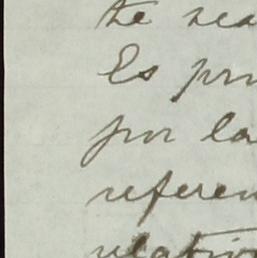 te rea
Es pri
por la
referen
relativ